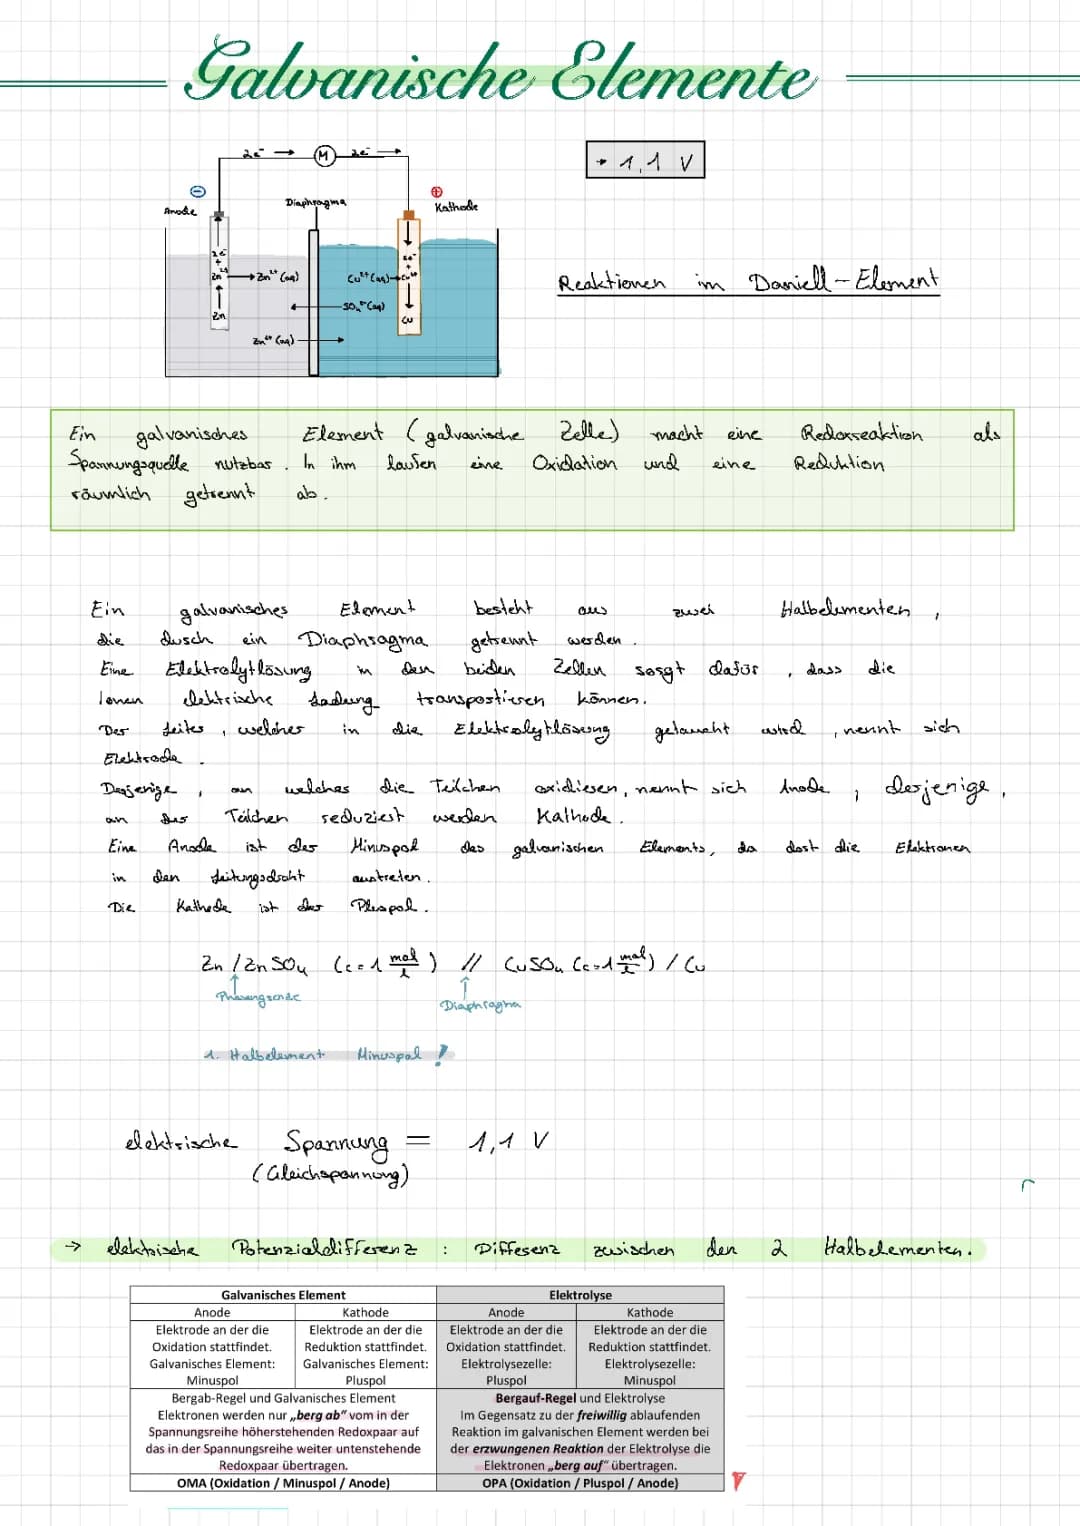 Galvanische Elemente
2e⁻ → M 2e⁻ →
→ 1,1 V
⊖
Anode
Diaphragma
⊕
Kathode
2e⁻
+
Zn²⁺ → Zn²⁺ (aq)
Zn
Cu²⁺ (aq) → Cu²⁺
+
SO₄²⁻ (aq)
Cu
Zn²⁺ (aq)
Reaktionen im Daniell-Element
Ein galvanisches Element (galvanische Zelle) macht eine Redoxreaktion als
Spannungsquelle nutzbar. In ihm laufen eine Oxidation und eine Reduktion
räumlich getrennt ab.
Ein galvanisches Element besteht aus zwei Halbelementen,
die durch ein Diaphragma getrennt werden.
Eine Elektrolytlösung in den beiden Zellen sorgt dafür, dass die
Ionen elektrische Ladung transportieren können.
Der Leiter, welcher in die Elektrolytlösung getaucht wird, nennt sich
Elektrode.
Derjenige, an welches die Teilchen oxidieren, nennt sich Anode, derjenige,
an der Teilchen reduziert werden Kathode.
Eine Anode ist der Minuspol des galvanischen Elements, da dort die Elektronen
in den Leitungsdraht austreten.
Die Kathode ist der Pluspol.
Zn / ZnSO₄ (c = 1 mol/l) // CuSO₄ (c = 1 mol/l) / Cu
Phasengrenze
Diaphragma
1. Halbelement Minuspol !
elektrische Spannung = 1,1 V
(Gleichspannung)
→ elektrische Potenzialdifferenz : Differenz zwischen den 2 Halbelementen.
Galvanisches Element
Elektrolyse
Anode
Kathode
Anode
Kathode
Elektrode an der die
Oxidation stattfindet.
Galvanisches Element:
Minuspol
Elektrode an der die
Reduktion stattfindet.
Galvanisches Element:
Pluspol
Elektrode an der die
Oxidation stattfindet.
Elektrolysezelle:
Pluspol
Elektrode an der die
Reduktion stattfindet.
Elektrolysezelle:
Minuspol
Bergab-Regel und Galvanisches Element
Elektronen werden nur „berg ab“ vom in der
Spannungsreihe höherstehenden Redoxpaar auf
das in der Spannungsreihe weiter untenstehende
Redoxpaar übertragen.
Bergauf-Regel und Elektrolyse
Im Gegensatz zu der freiwillig ablaufenden
Reaktion im galvanischen Element werden bei
der erzwungenen Reaktion der Elektrolyse die
Elektronen „berg auf“ übertragen.
OMA (Oxidation / Minuspol / Anode)
OPA (Oxidation / Pluspol / Anode)